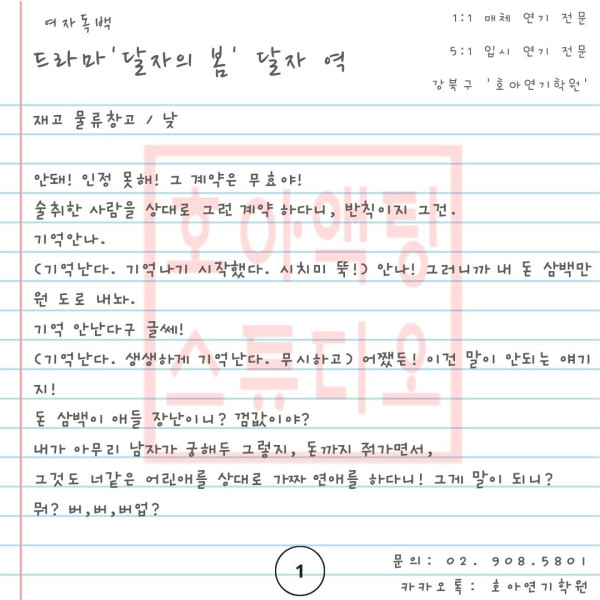 여자독백
드라마'달자의 봄' 달자 역
1:1 매체 연기 전문
5:1 입시 연기 전문
강북구 '호아연기학원'
재고 물류창고 / 낮
안돼! 인정 못해! 그 계약은 무효야!
술취한 사람을 상대로 그런 계약 하다니, 반칙이지 그건.
기억안나.
(기억난다. 기억나기 시작했다. 시치미 뚝!) 안나! 그러니까 내 돈 삼백만
원 도로 내놔.
기억 안난다구 글쎄!
(기억난다. 생생하게 기억난다. 무시하고) 어쨌든! 이건 말이 안되는 얘기
지!
돈 삼백이 애들 장난이니? 껌값이야?
내가 아무리 남자가 궁해두 그렇지, 돈까지 줘가면서,
그것도 너같은 어린애를 상대로 가짜 연애를 하다니! 그게 말이 되니?
뭐? 버,버,버업?
호아액팅
스튜디오
1
문의: 02. 908.5801
카카오톡: 호아연기학원